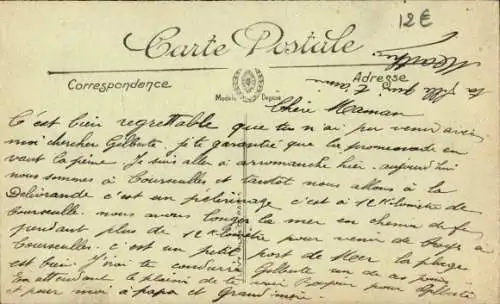 12€
Carte Postale
Correspondance
Adresse
Modèle Déposé
ta fille qui t'aime
Chère Maman
C'est bien regrettable que tu n'ai pu venir avec
moi chercher Gilberte je te garantie que la promenade en
vaut la peine. Je suis allé a arromanche hier, aujourd'hui
nous sommes à Courseulles et tantôt nous allons à la
Délivrande c'est un pèlerinage c'est à 12 Kilomètre de
Courseulle. nous avons longer la mer en chemin de fer
pendant plus de 12 Kilomètre pour venir de
Courseulles. c'est un petit port de Mer la plage
est bien J'irai te conduire Gilberte un de ces jours
En attendant le plaisir de te voir Bonjour pour Gilberte
et pour moi à papa et Grand'mère